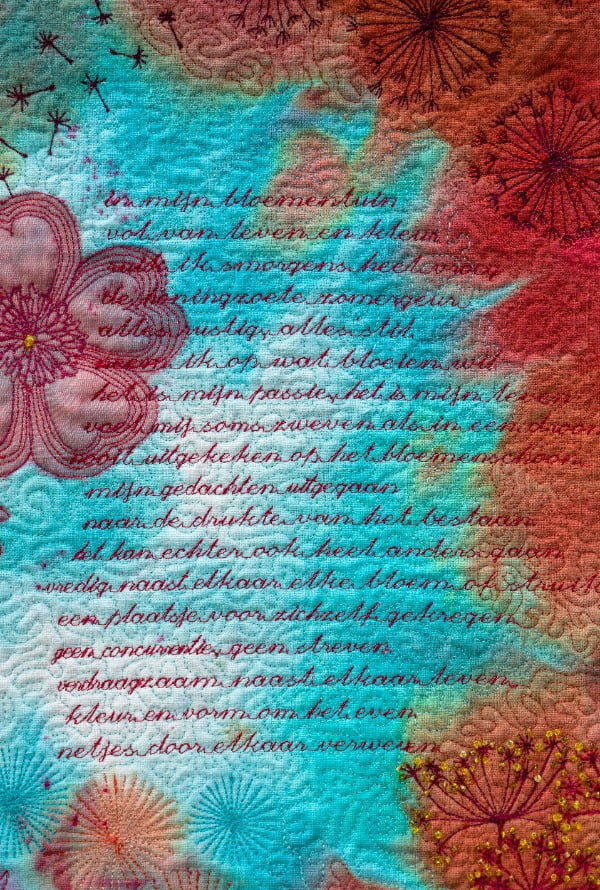 in mijn bloementuin
vol van leven en kleur
ruik ik smorgens heel vroeg
de honingzoete zomergeur
alles rustig, alles stil
neem ik op wat bloeien wil
het is mijn passie, het is mijn leven
voel mij soms zweven als in een droom
nooit uitgekeken op het bloemenschoon
mijn gedachten uitgegaan
naar de drukte van het bestaan
het kan echter ook heel anders gaan
vredig naast elkaar elke bloem of struik
een plaatsje voor zichzelf gekregen
geen concurrentie, geen streven
verdraagzaam naast elkaar leven
kleur en vorm om het even
netjes door elkaar verweven